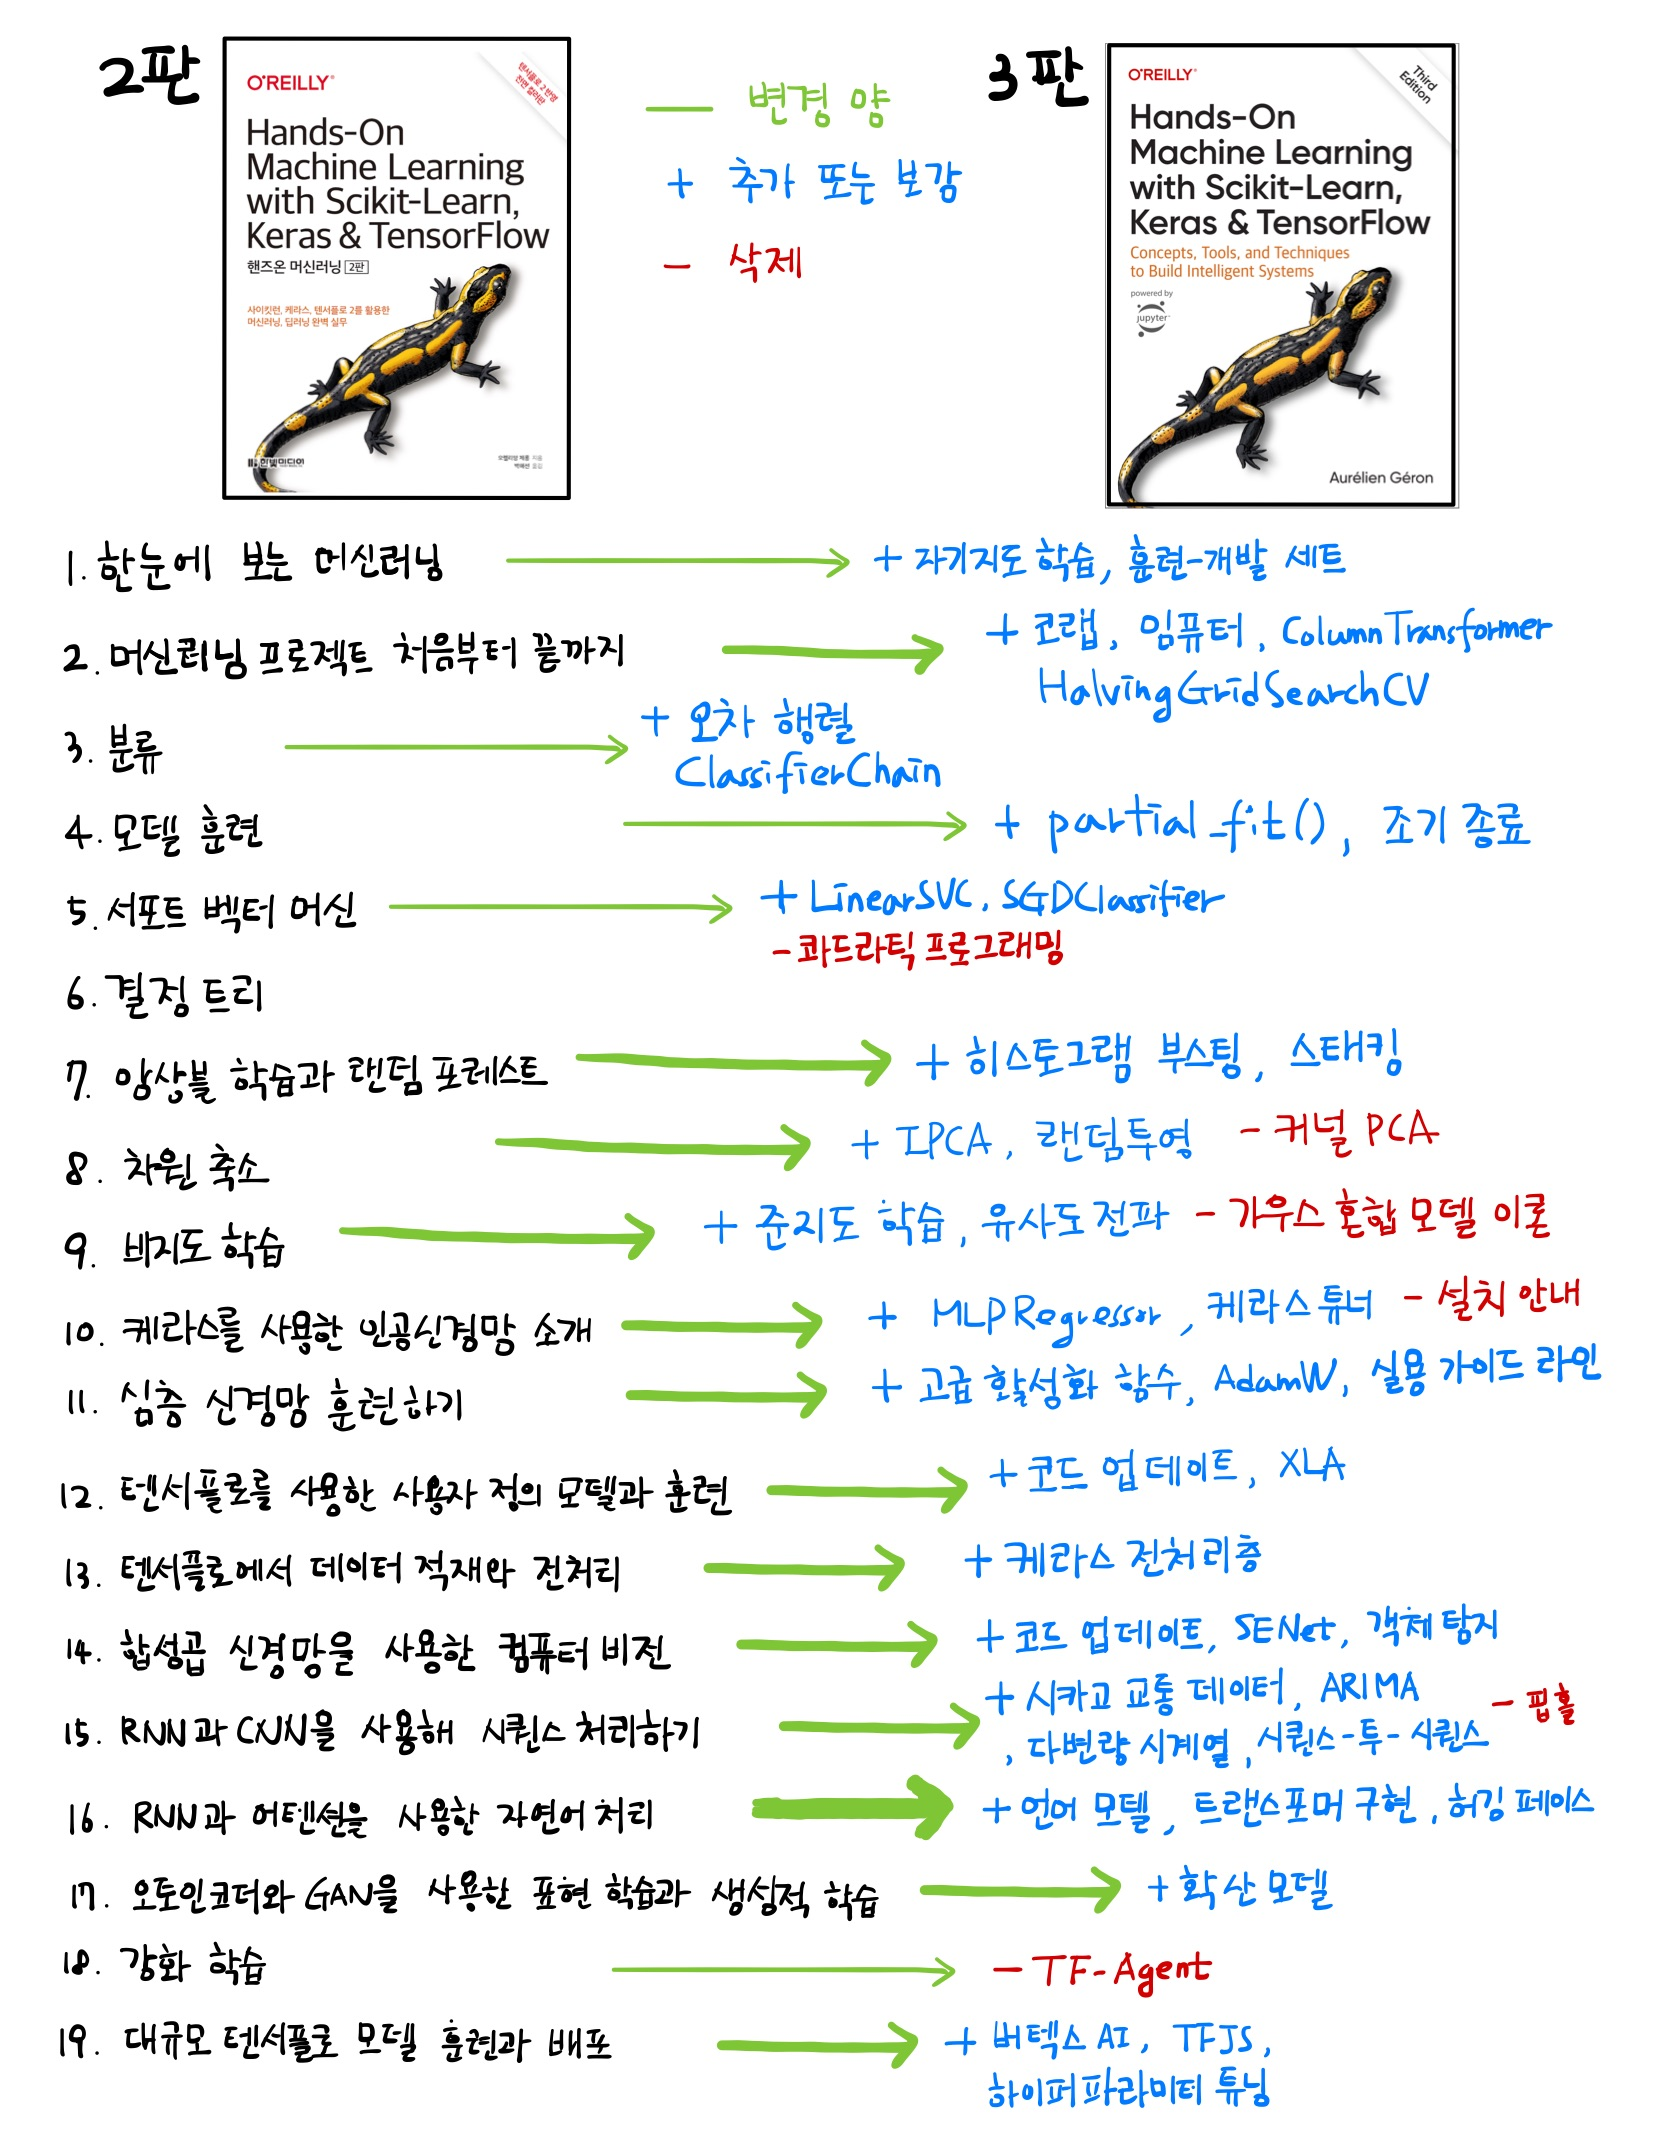 2판
O'REILLY
텐서플로 2 반영
전면 컬러판
Hands-On
Machine Learning
with Scikit-Learn,
Keras & TensorFlow
핸즈온 머신러닝 2판
사이킷런, 케라스, 텐서플로 2를 활용한
머신러닝, 딥러닝 완벽 실무
한빛미디어
오렐리앙 제롱 지음
박해선 옮김
변경 양
+ 추가 또는 보강
- 삭제
3판
O'REILLY
Third
Edition
Hands-On
Machine Learning
with Scikit-Learn,
Keras & TensorFlow
Concepts, Tools, and Techniques
to Build Intelligent Systems
powered by
jupyter
Aurélien Géron
1. 한눈에 보는 머신러닝 + 자기지도 학습, 훈련-개발 세트
2. 머신러닝 프로젝트 처음부터 끝까지 + 코랩, 임퓨터, ColumnTransformer
HalvingGridSearchCV
3. 분류 + 오차 행렬
ClassifierChain
4. 모델 훈련 + partial_fit(), 조기 종료
5. 서포트 벡터 머신 + LinearSVC, SGDClassifier
- 콰드라틱 프로그래밍
6. 결정 트리
7. 앙상블 학습과 랜덤 포레스트 + 히스토그램 부스팅, 스태킹
8. 차원 축소 + IPCA, 랜덤투영 - 커널 PCA
9. 비지도 학습 + 준지도 학습, 유사도 전파 - 가우스 혼합 모델 이론
10. 케라스를 사용한 인공신경망 소개 + MLPRegressor, 케라스 튜너 - 설치 안내
11. 심층 신경망 훈련하기 + 고급 활성화 함수, AdamW, 실용 가이드 라인
12. 텐서플로를 사용한 사용자 정의 모델과 훈련 + 코드 업데이트, XLA
13. 텐서플로에서 데이터 적재와 전처리 + 케라스 전처리층
14. 합성곱 신경망을 사용한 컴퓨터 비전 + 코드 업데이트, SENet, 객체 탐지
15. RNN과 CNN을 사용해 시퀀스 처리하기 + 시카고 교통 데이터, ARIMA
, 다변량 시계열, 시퀀스-투-시퀀스 - 핍홀
16. RNN과 어텐션을 사용한 자연어 처리 + 언어 모델, 트랜스포머 구현, 허깅 페이스
17. 오토인코더와 GAN을 사용한 표현 학습과 생성적 학습 + 확산 모델
18. 강화 학습 - TF-Agent
19. 대규모 텐서플로 모델 훈련과 배포 + 버텍스 AI, TFJS,
하이퍼파라미터 튜닝